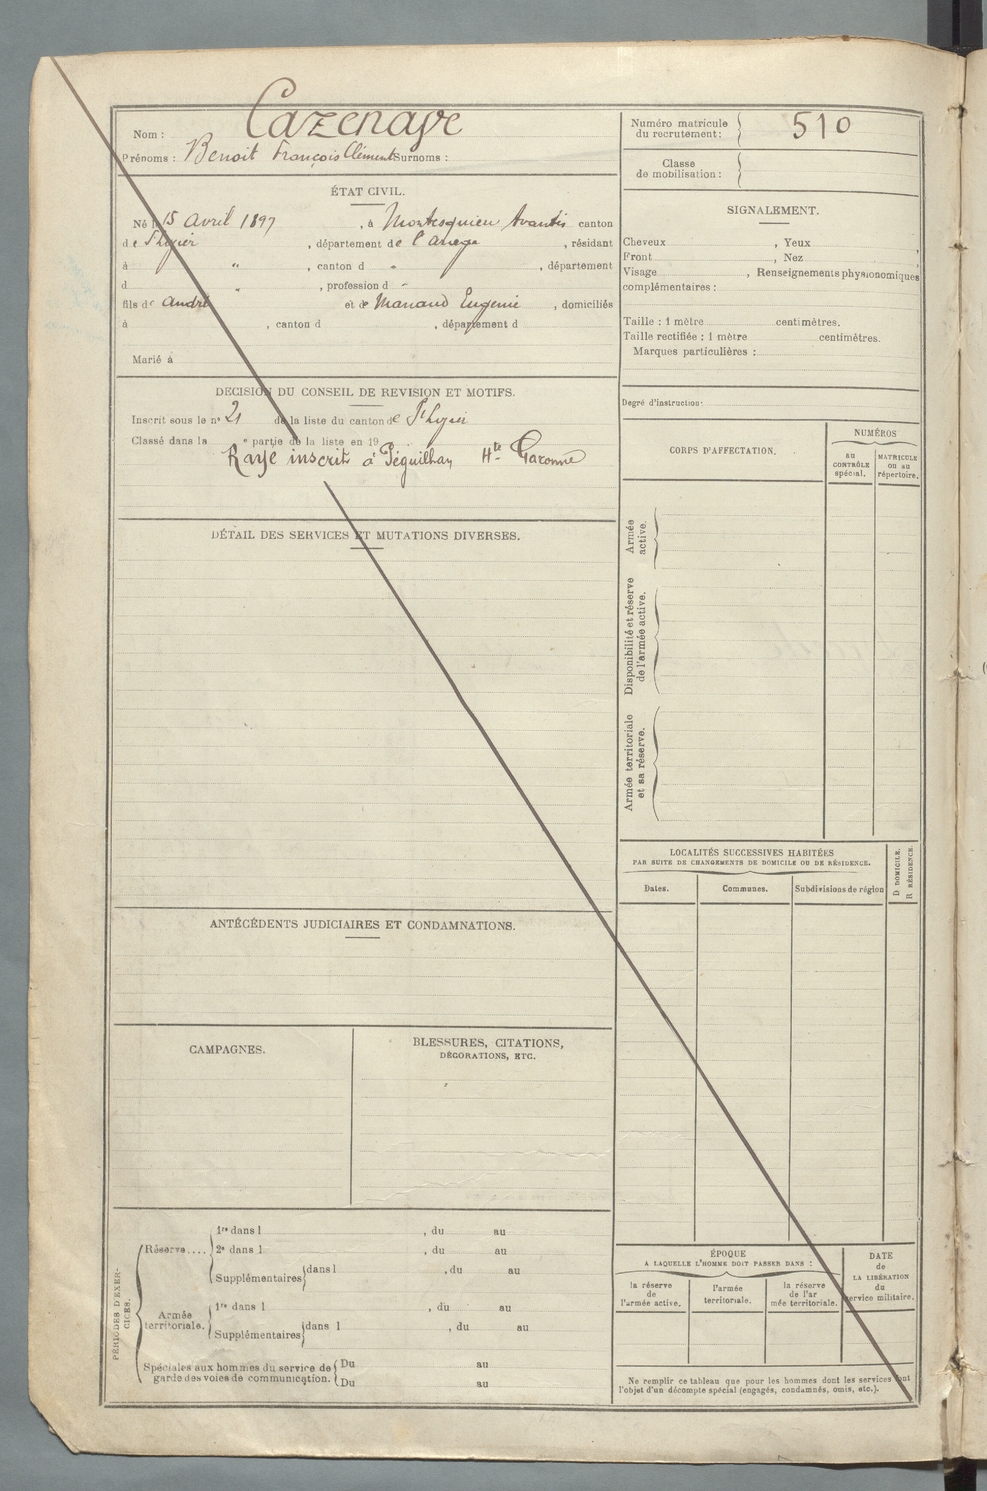 Nom : Cazenave
Prénoms : Benoit François Clément Surnoms :
Numéro matricule
du recrutement : 510
Classe
de mobilisation :
ÉTAT CIVIL.
Né le 15 Avril 1897, à Montesquieu Avantis canton
de St Lizier, département de l'Ariège, résidant
à " , canton d " , département
d " , profession d "
fils de André et de Manaud Eugenie, domiciliés
à , canton d , département d
Marié à
SIGNALEMENT.
Cheveux , Yeux ,
Front , Nez ,
Visage , Renseignements physionomiques
complémentaires :
Taille : 1 mètre centimètres.
Taille rectifiée : 1 mètre centimètres.
Marques particulières :
Degré d'instruction :
DECISION DU CONSEIL DE REVISION ET MOTIFS.
Inscrit sous le n° 21 de la liste du canton de St Lizier
Classé dans la e partie de la liste en 19
Rayé inscrit à Péguilhan Hte Garonne
CORPS D'AFFECTATION.
NUMÉROS
au
CONTRÔLE
spécial.
MATRICULE
ou au
répertoire.
Armée
active.
Disponibilité et réserve
de l'armée active.
Armée territoriale
et sa réserve.
DÉTAIL DES SERVICES ET MUTATIONS DIVERSES.
LOCALITÉS SUCCESSIVES HABITÉES
PAR SUITE DE CHANGEMENTS DE DOMICILE OU DE RÉSIDENCE.
Dates.
Communes.
Subdivisions de région
D DOMICILE.
R RÉSIDENCE.
ANTÉCÉDENTS JUDICIAIRES ET CONDAMNATIONS.
CAMPAGNES.
BLESSURES, CITATIONS,
DÉCORATIONS, ETC.
PÉRIODES D'EXER-
CICES.
Réserve....
1re dans l , du au
2e dans l , du au
Supplémentaires dans l , du au
Armée
territoriale.
1re dans l , du au
Supplémentaires dans l , du au
Spéciales aux hommes du service de
garde des voies de communication.
Du au
Du au
ÉPOQUE
A LAQUELLE L'HOMME DOIT PASSER DANS :
la réserve
de
l'armée active.
l'armée
territoriale.
la réserve
de l'ar
mée territoriale.
DATE
de
LA LIBÉRATION
du
service militaire.
Ne remplir ce tableau que pour les hommes dont les services font
l'objet d'un décompte spécial (engagés, condamnés, omis, etc.).